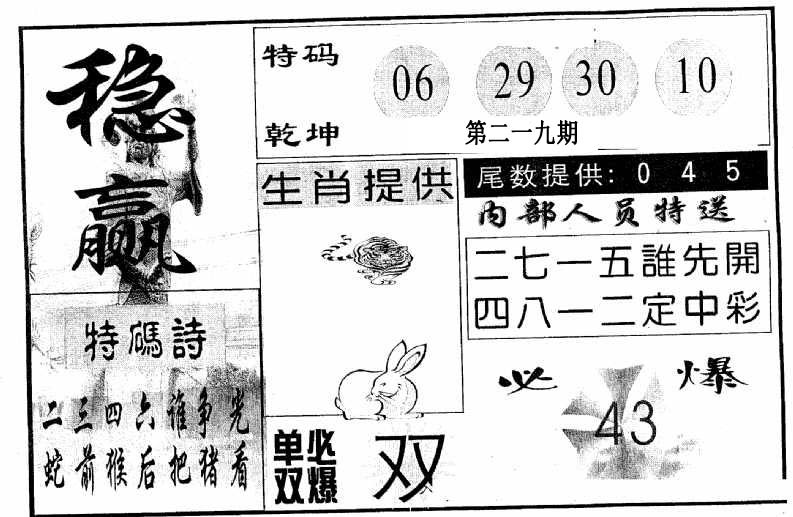 稳
赢
特码
乾坤
06 29 30 10
第二一九期
生肖提供
尾数提供: 0 4 5
内部人员特送
二七一五誰先開
四八一二定中彩
特碼詩
二三四六谁争光
蛇前猴后把猪看
单双
必爆
双
必爆
43